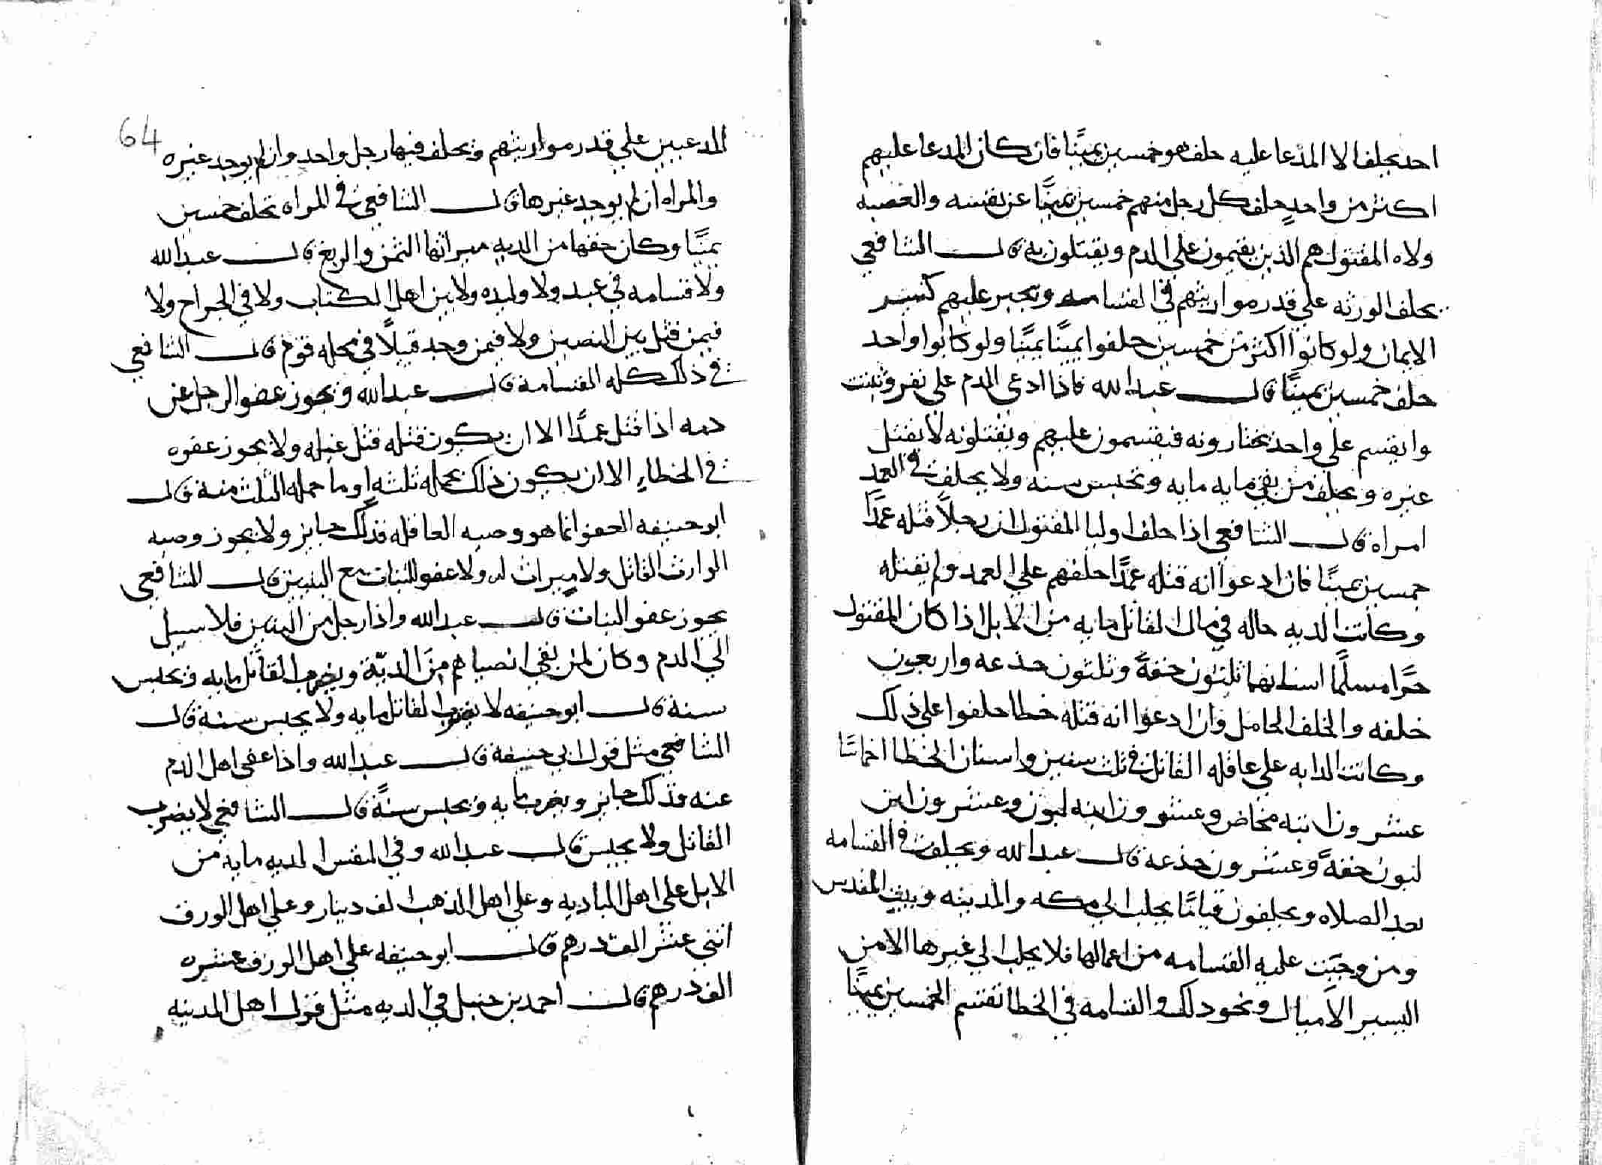 احد يحلف الا المدعا عليه حلف هو خمسين يمينًا فان كان المدعا عليهم
اكثر من واحد حلف كل رجل منهم خمسين يمينًا عن نفسه والعصبه
ولاه المقتول هم الذين يقسمون على الدم ويقتلون به قال الشافعي
يحلف الورثه على قدر مواريثهم في القسامه ويجبر عليهم كسر
الايمان ولو كانوا اكثر من خمسين حلفوا يمينًا يمينًا ولو كانوا واحد
حلف خمسين يمينًا قال عبد الله فاذا ادعى الدم على نفر وثبت
وا يقسم على واحد يختارونه فيقسمون عليهم ويقتلونه لا يقتل
غيره ويحلف من بقي مايه مايه ويحبس سنه ولا يحلف في العمد
امراه قال الشافعي اذا حلف وليا المقتول ان رجلاً قتله عمدًا
خمسين يمينًا فان ادعوا انه قتله عمدًا احلفهم على العمد ولم يقتله
وكانت الديه حاله في مال القاتل مايه من الابل اذا كان المقتول
حرًا مسلمًا اسنانها ثلثون حقةً وثلثون جذعه واربعون
خلفه والخلف الحامل وان ادعوا انه قتله خطا حلفوا على ذلك
وكانت الدايه على عاقله القاتل في ثلث سنين واسنان الخطا اخماسًا
عشرون ابنه مخاض وعشرون ابنه لبون وعشرون ابن
لبون حقةً وعشرون جذعة قال عبد الله ويحلف في القسامه
بعد الصلاه ويحلفون قيامًا يجلب الى مكه والمدينه وبيت المقدس
ومن وجبت عليه القسامه من اعمالها فلا يجلب الى غيرها الا من
اليسير الاميال ونحو ذلك والقسامه في الخطا تقسم الخمسين يمينًا
64
المدعيين على قدر مواريثهم ويحلف فيها رجل واحد وان لم يوجد غيره
والمراه ان لم يوجد غيرها قال الشافعي في المراه تحلف خمسين
يمينًا وكان حقها من الديه ميراثها الثمن والربع قال عبد الله
ولا قسامه في عبد ولا وليده ولا بين اهل الكتاب ولا في الجراح ولا
فيمن قتل بين الصفين ولا فيمن وجد قتيلًا في محله قوم قال الشافعي
في ذلك كله القسامة قال عبد الله ويجوز عفو الرجل عن
دمه اذا قتل عمدًا الا ان يكون قتله قتل غيله ولا يجوز عفوه
في الخطاء الا ان يكون ذلك يحمله ثلثه او ما حمله الثلث منه قال
ابو حنيفه العفو انما هو وصيه العاقله فذلك جايز ولا يجوز وصيه
الوارث القاتل ولا ميراث له ولا عفو للبنات مع البنين قال الشافعي
يجوز عفو البنات قال عبد الله واذا رجل من البنين فلا سبيل
الى الدم وكان لمن بقي انصباهم من الديّة ويضرب القاتل مايه ويحبس
سنة قال ابو حنيفه لا يضرب القاتل مايه ولا يحبس سنة قال
الشافعي مثل قول ابي حنيفة قال عبد الله واذا عفى اهل الدم
عنه فذلك جايز ويضرب مايه ويحبس سنةً قال الشافعي لا يضرب
القاتل ولا يحبس قال عبد الله وفي النفس الديه مايه من
الابل على اهل الباديه وعلى اهل الذهب الف دينار وعلى اهل الورق
اثني عشر الف درهم قال ابو حنيفه على اهل الورق عشره
الف درهم قال احمد بن حنبل في الديه مثل قول اهل المدينه